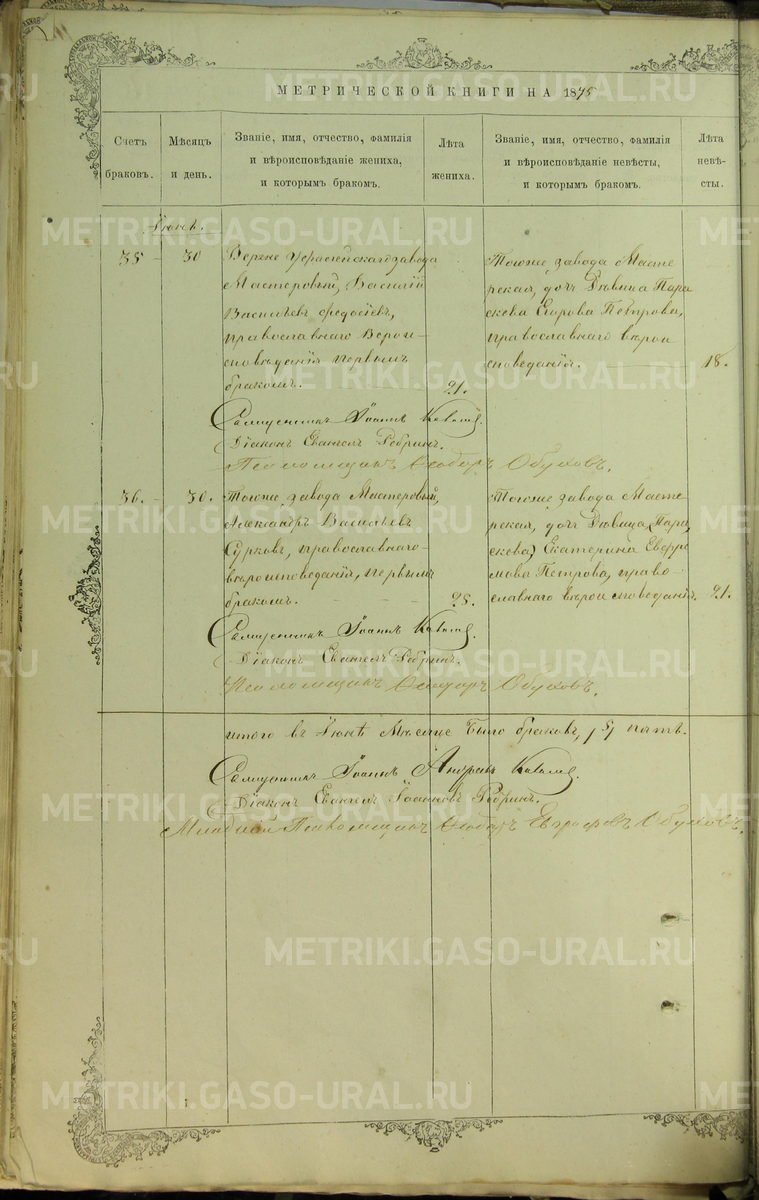 МЕТРИЧЕСКОЙ КНИГИ НА 1875
Счетъ браковъ.
Мѣсяцъ и день.
Званіе, имя, отчество, фамилія
и вѣроисповѣданіе жениха,
и которымъ бракомъ.
Лѣта жениха.
Званіе, имя, отчество, фамилія
и вѣроисповѣданіе невѣсты,
и которымъ бракомъ.
Лѣта невѣсты.
35 - 30
завода
Мастеровый, Василій
Васильевъ Ѳедосѣевъ,
православнаго Вѣрои-
сповѣданія первымъ
бракомъ.
21.
Тогоже завода Масте
рская дочь Дѣвица Пара
скева Егорова Петрова,
православнаго вѣрои
сповѣданія.
18.
Священникъ Іоаннъ
Діаконъ Евангелъ Ребринъ.
Псаломщикъ Ѳеодоръ Обуховъ.
36. - 30.
Тогоже завода Мастеровый,
Александръ Васильевъ
Сурковъ, православнаго
вѣроисповеданія, первымъ
бракомъ.
25.
Тогоже завода Масте
рская, дочь Дѣвица (Пара
скева) Екатерина Евфи
мова Петрова, право-
славнаго вѣроисповеданія.
21.
Священникъ Іоаннъ
Діаконъ Евангелъ Ребринъ.
Псаломщикъ Ѳеодоръ Обуховъ.
итого въ Мѣсяцѣ было браковъ, (5) пять.
Священникъ Іоаннъ Андреевъ
Діаконъ Евангелъ Іоанновъ Ребринъ.
Младшій Псаломщикъ Ѳеодоръ Евграфовъ Обуховъ.
METRIKI.GASO-URAL.RU